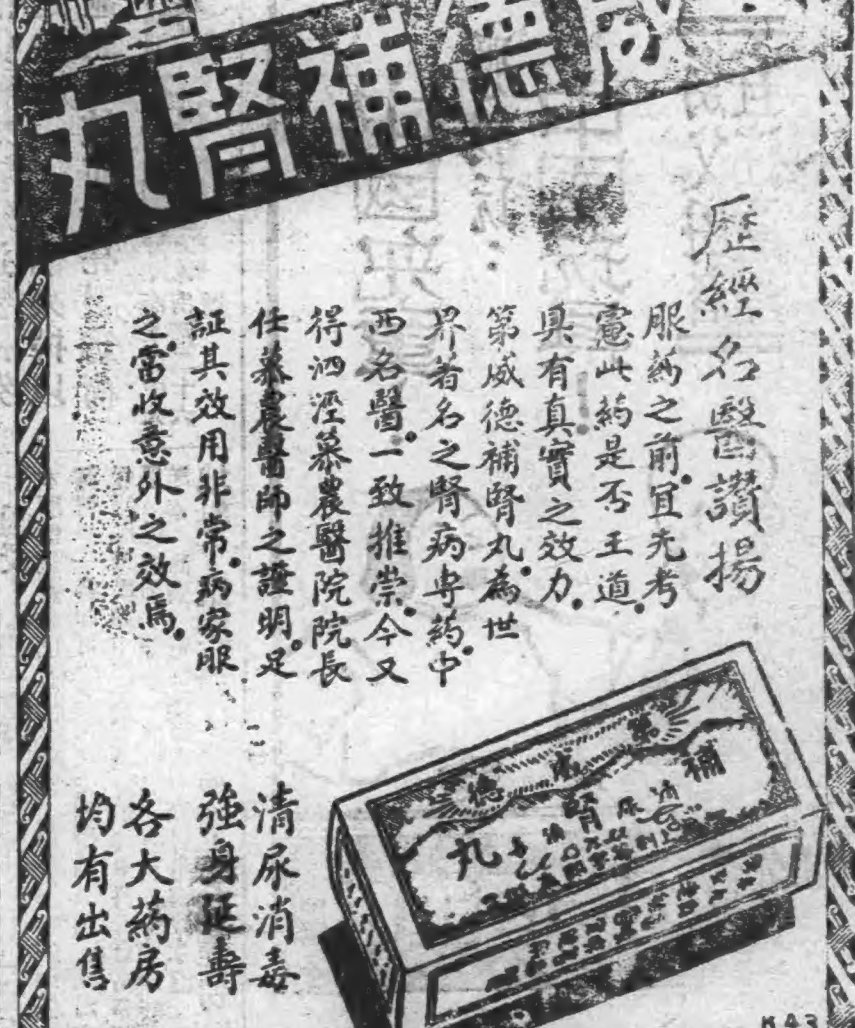 威德補腎丸
歷經名醫讚揚
服葯之前。宜先考
慮此葯是否王道。
具有真實之效力。
第威德補腎丸。為世
界著名之腎病專葯。中
西名醫。一致推崇。今又
得泗涇慕農醫院院長
任慕農醫師之證明。足
証其效用非常。病家服
之。當收意外之效焉。
清尿消毒
強身延壽
各大葯房
均有出售
第威德
補腎丸